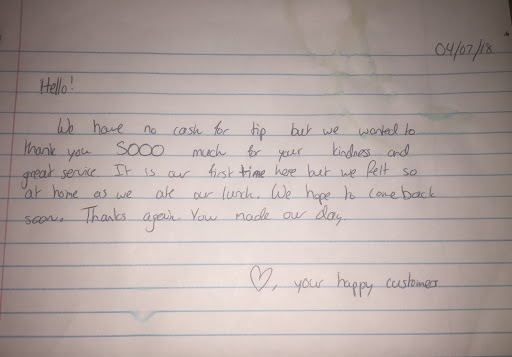 04/07/18
Hello!
We have no cash for tip but we wanted to
thank you SOOO much for your kindness and
great service. It is our first time here but we felt so
at home as we ate our lunch. We hope to come back
soon. Thanks again. You made our day,
♡, your happy customers